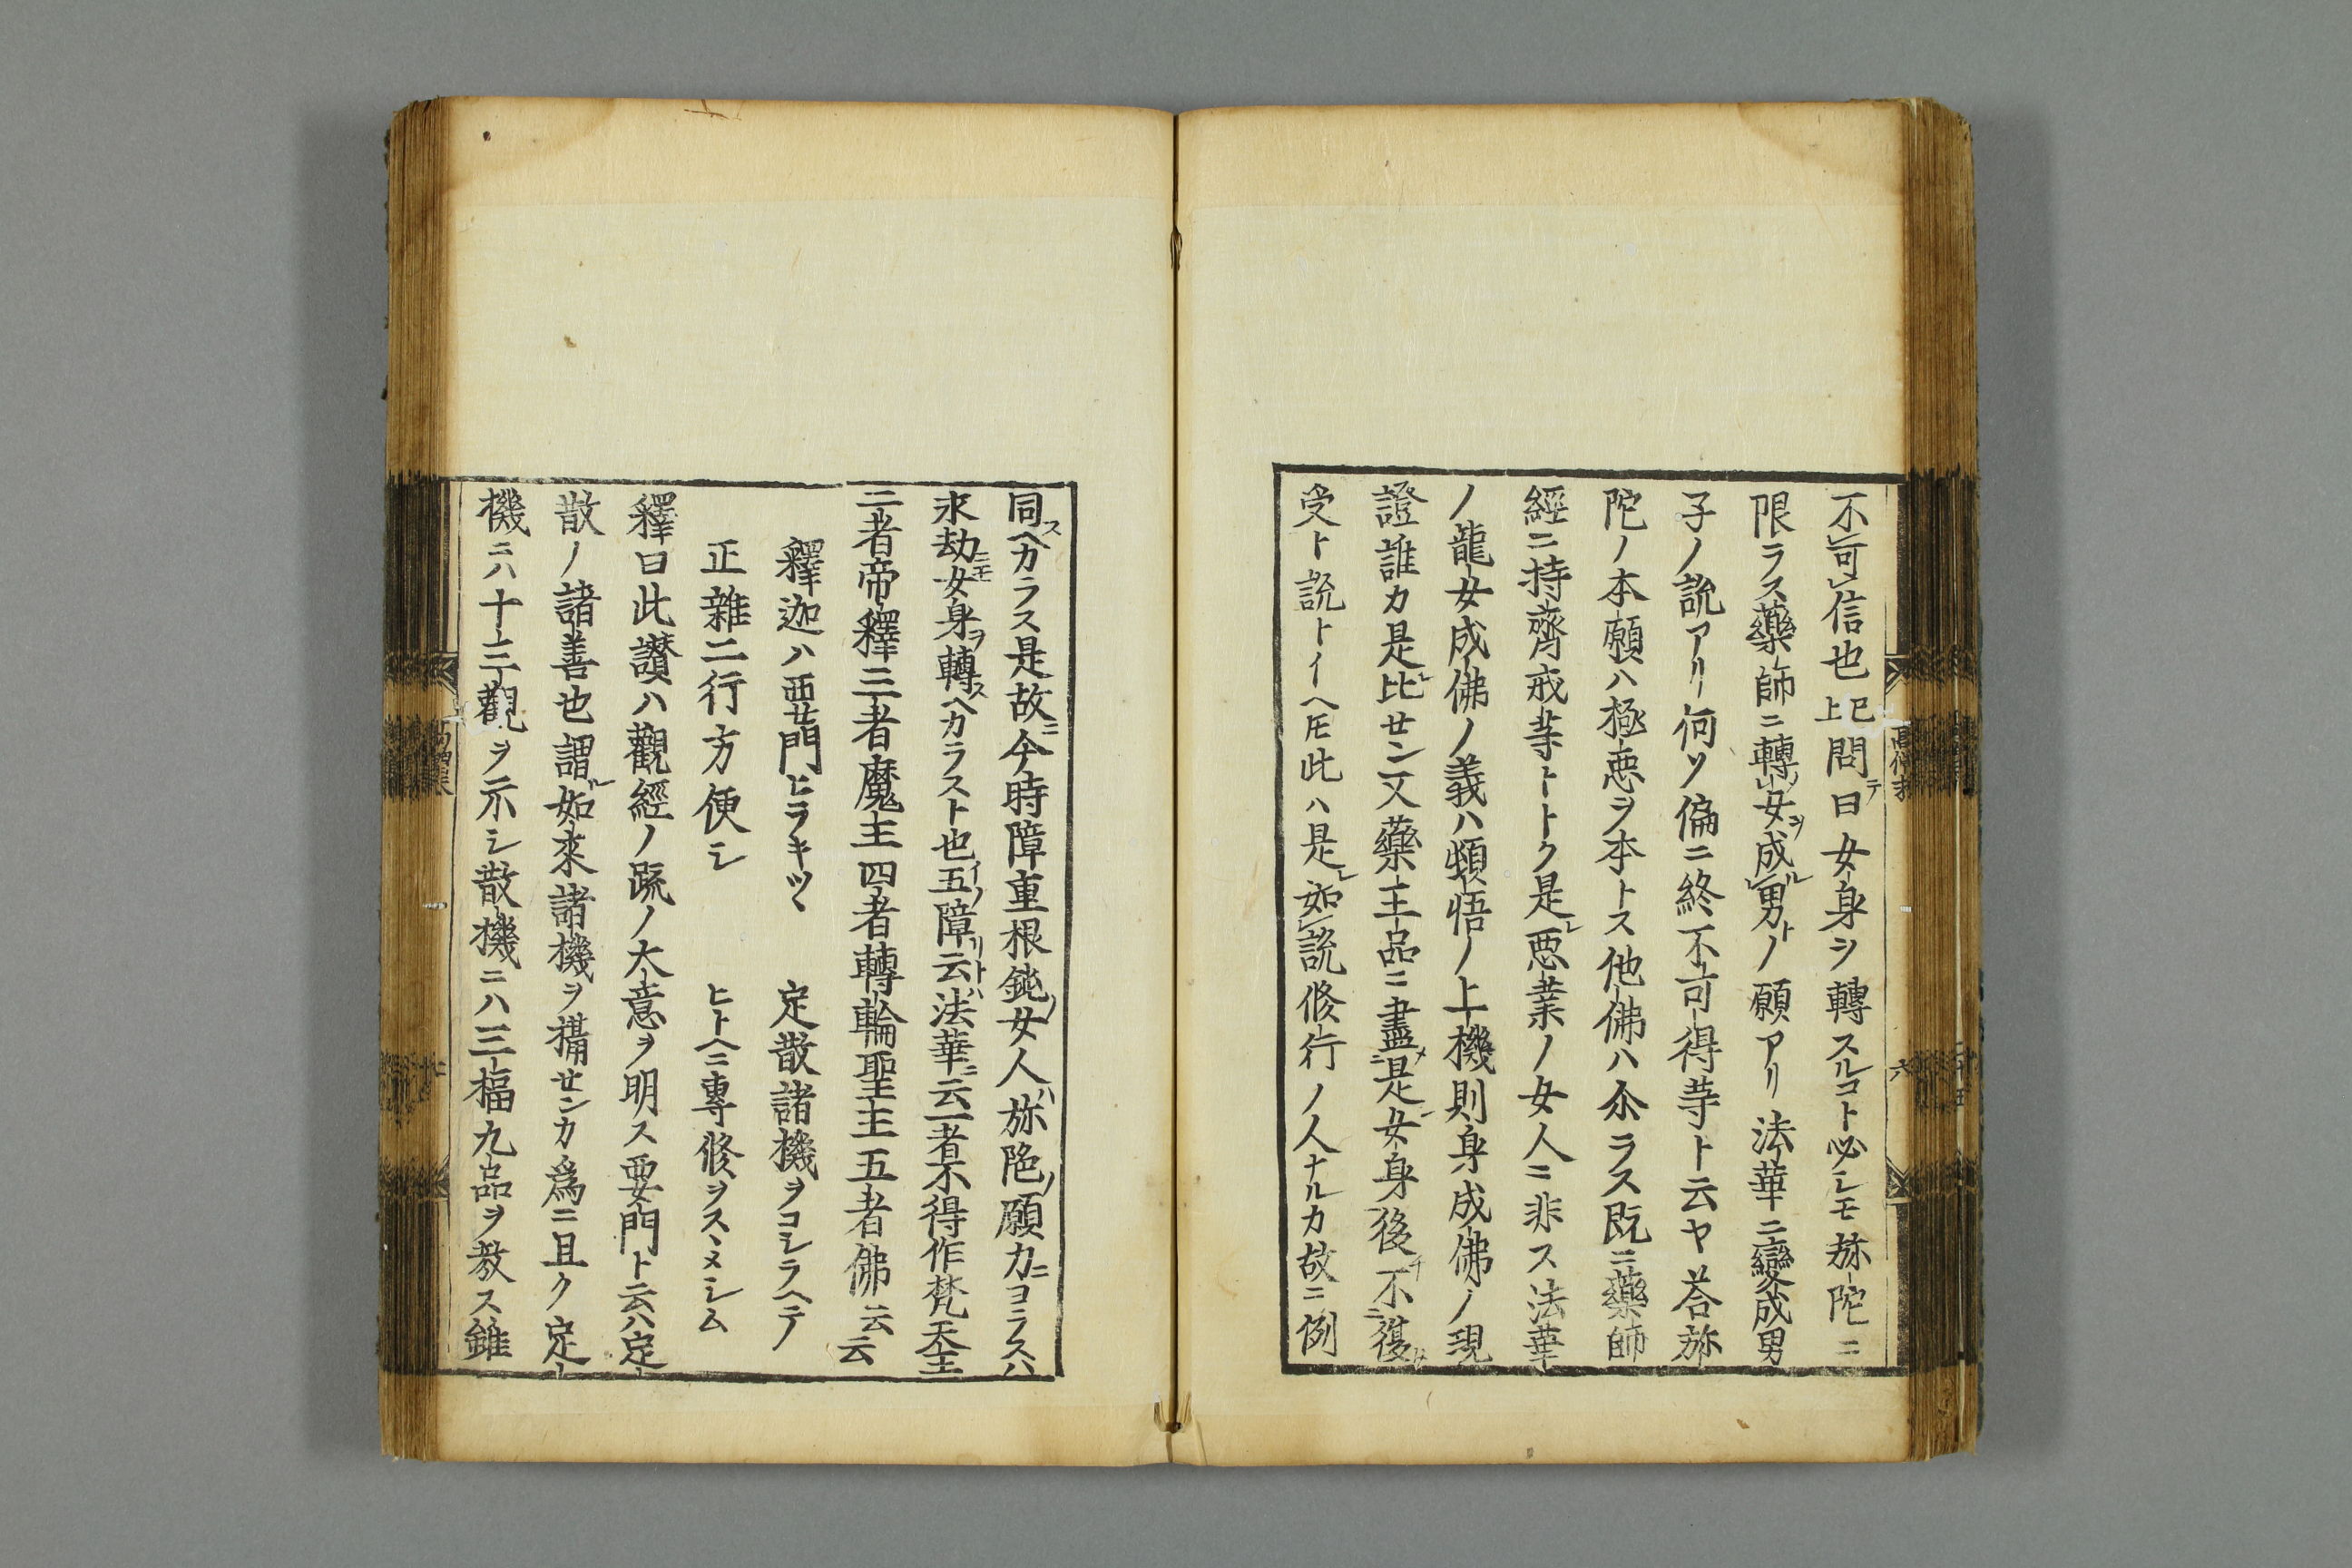 不可信也已上問曰女身ヲ轉スルコト必シモ弥陀ニ
限ラス藥師ニ轉女成男ノ願アリ法華ニ變成男
子ノ説アリ何ソ偏ニ終不可得等ト云ヤ荅弥
陀ノ本願ハ極悪ヲ本トス他佛ハ尒ラス既ニ藥師
經ニ持齊戒等トトク是悪業ノ女人ニ非ス法華
ノ龍女成佛ノ義ハ頓悟ノ上機則身成佛ノ現
證誰カ是比セン又藥王品ニ盡是女身後不復
受ト説トイヘ𪜈此ハ是如説修行ノ人ナルカ故ニ例
同スヘカラス是故ニ今時障重根鈍ノ女人ハ弥陀ノ願力ニヨラスハ
永劫ニモ女身ヲ轉スヘカラスト也五障ト云ハ法華ニ云一者不得作梵天王
二者帝釋三者魔王四者轉輪聖王五者佛云云
釋迦ハ要門ヒラキツヽ 定散諸機ヲコシラヘテ
正雜二行方便シ ヒトヘニ專修ヲスヽメシム
釋曰此讃ハ觀經ノ疏ノ大意ヲ明ス要門ト云ハ定
散ノ諸善也謂如來諸機ヲ攝センカ爲ニ且ク定
機ニハ十三觀ヲ示シ散機ニハ三福九品ヲ教ス雖